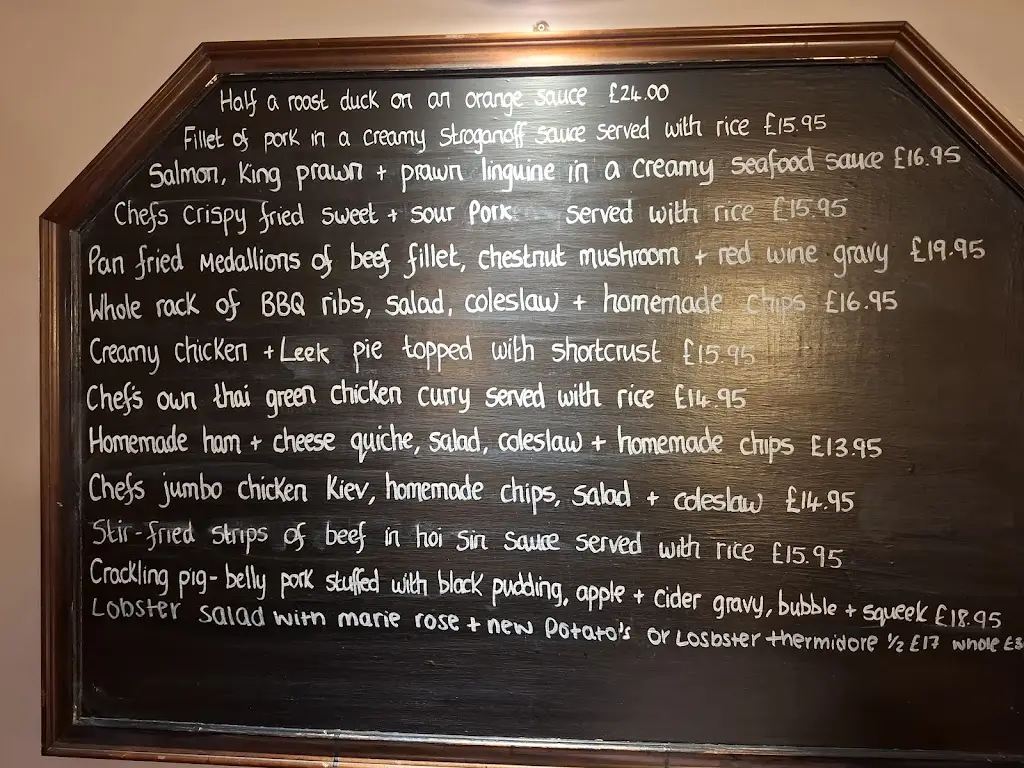 Half a roast duck on an orange sauce £24.00
Fillet of pork in a creamy Stroganoff sauce served with rice £15.95
Salmon, King prawn + prawn linguine in a creamy seafood sauce £16.95
Chefs crispy fried sweet + sour Pork served with rice £15.95
Pan fried medallions of beef fillet, chestnut mushroom + red wine gravy £19.95
Whole rack of BBQ ribs, salad, coleslaw + homemade chips £16.95
Creamy chicken + Leek pie topped with shortcrust £15.95
Chefs own thai green chicken curry served with rice £14.95
Homemade ham + cheese quiche, salad, coleslaw + homemade chips £13.95
Chefs jumbo chicken Kiev, homemade chips, salad + coleslaw £14.95
Stir-fried strips of beef in hoi sin sauce served with rice £15.95
Crackling pig-belly pork stuffed with black pudding, apple + cider gravy, bubble + squeek £18.95
Lobster salad with marie rose + new Potato's or Losbster thermidore ½ £17 whole